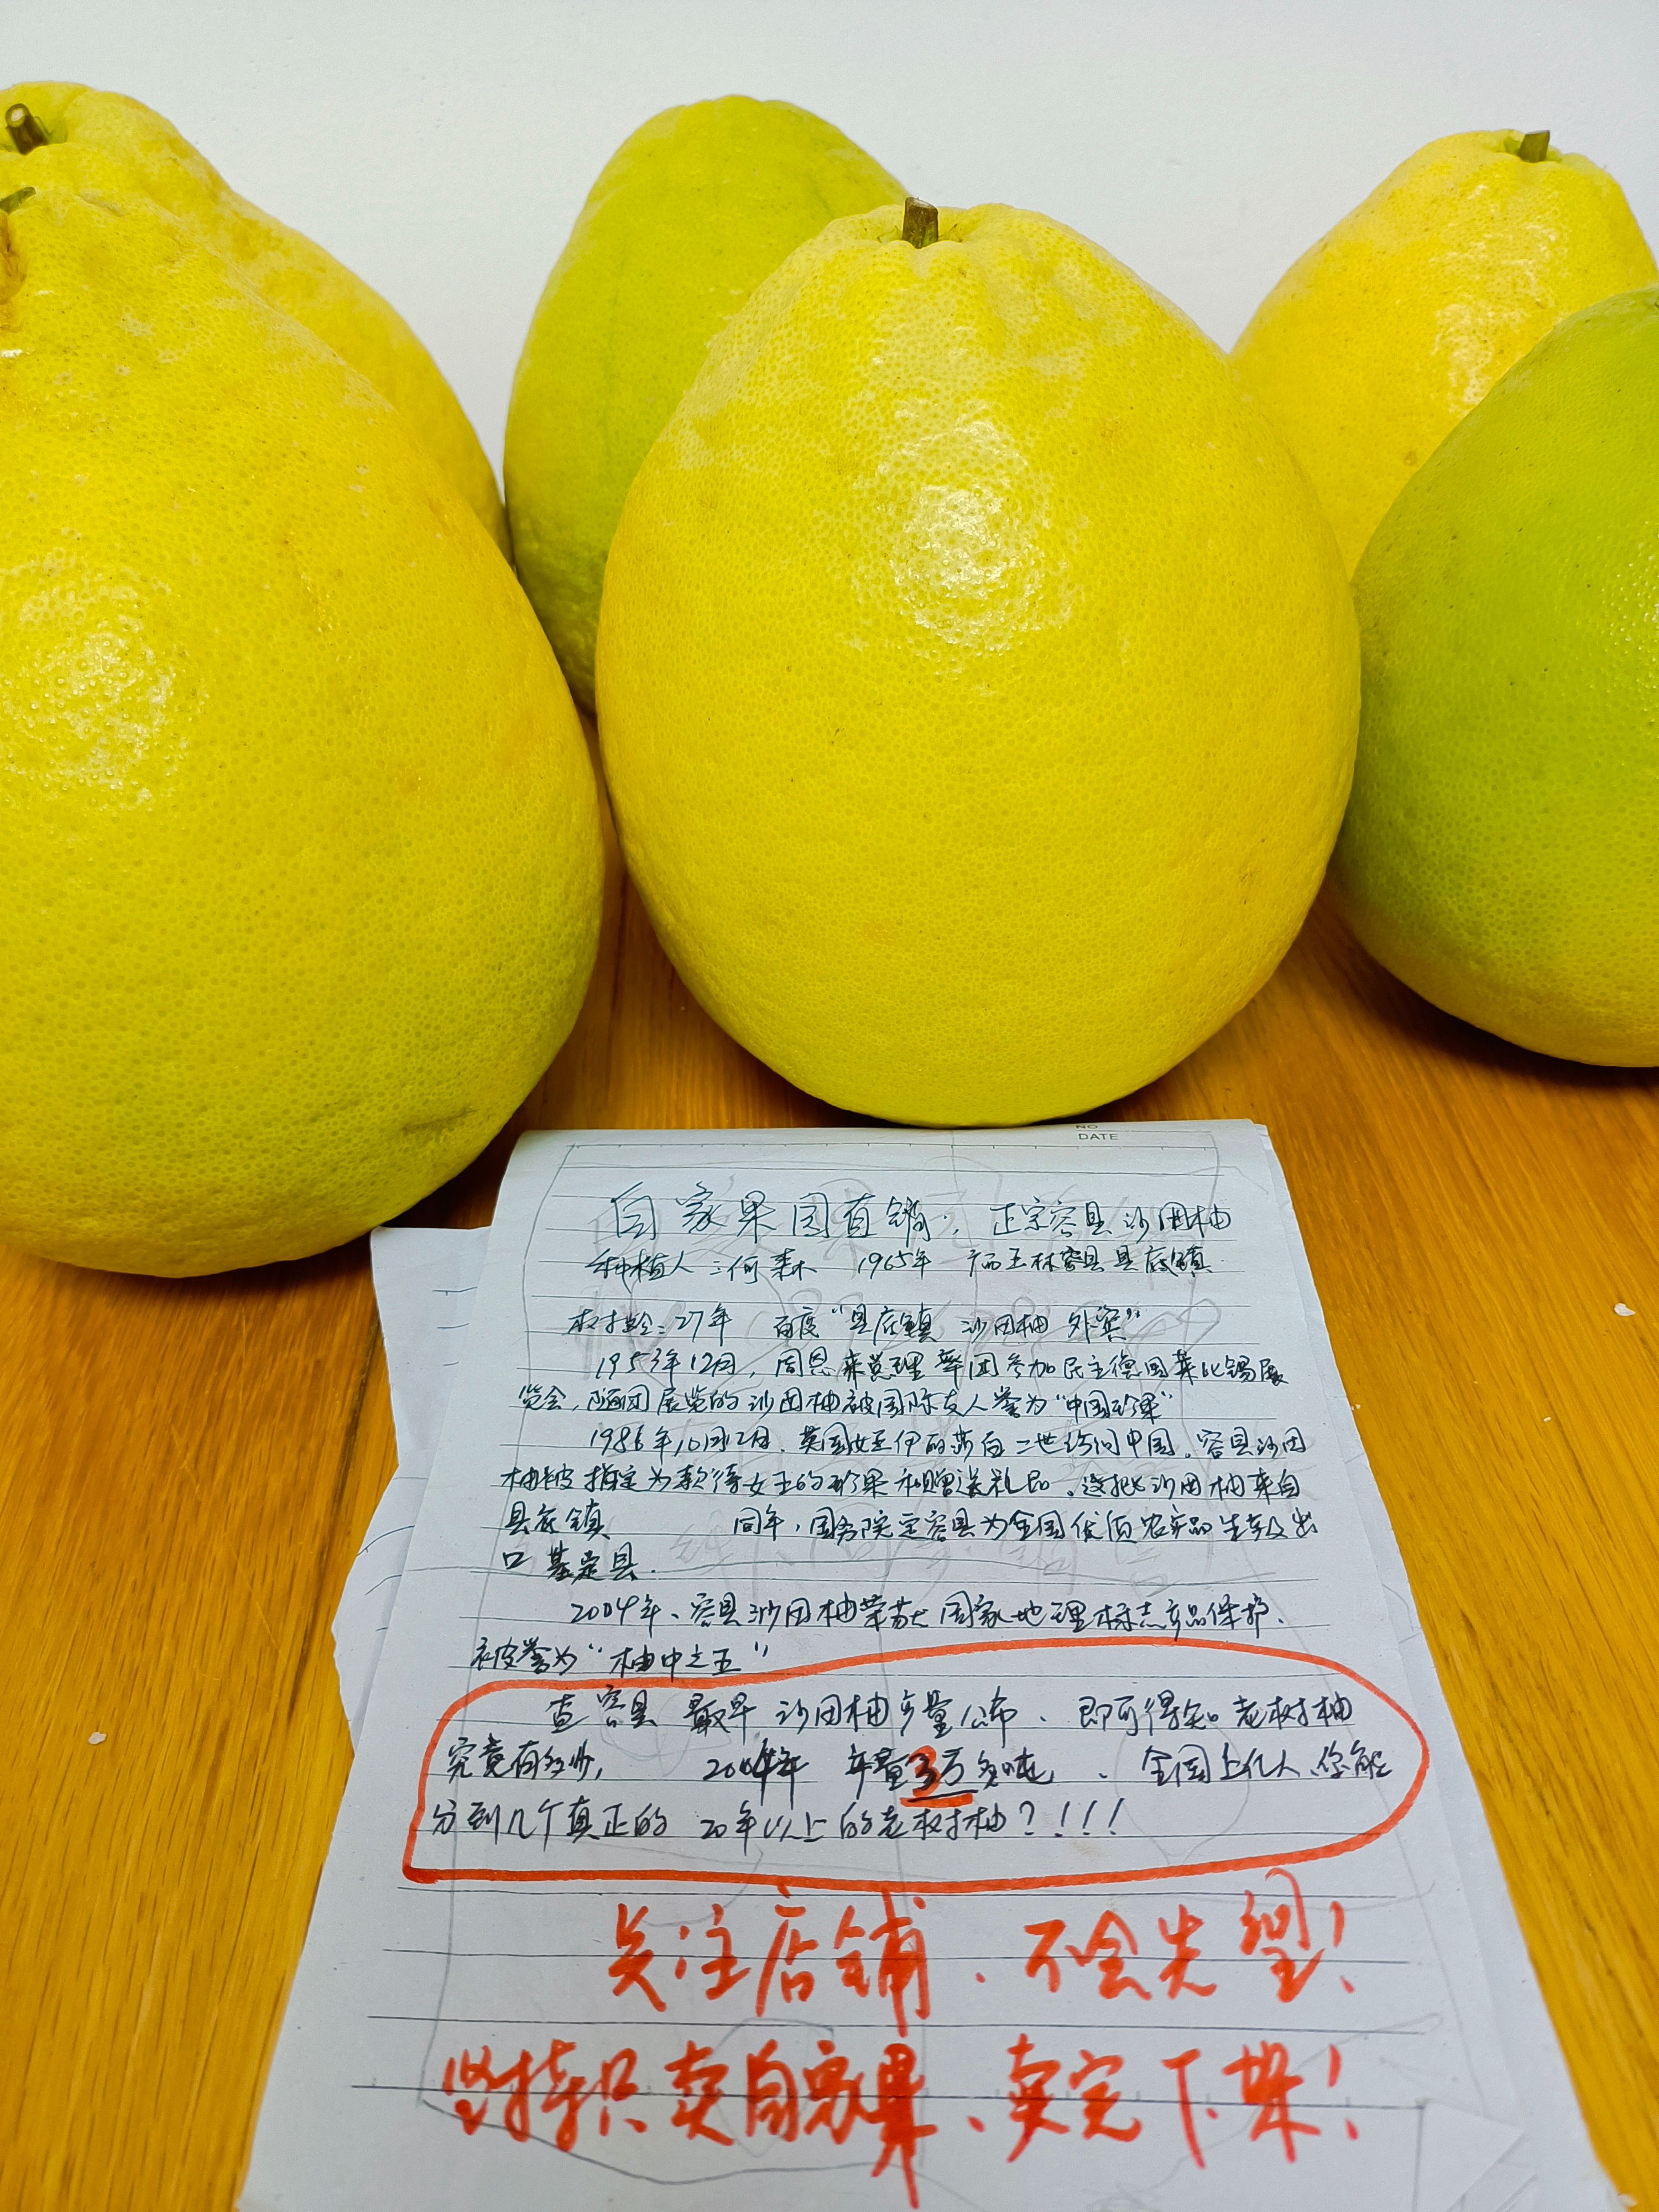 NO
DATE
自家果园直销, 正宗容县沙田柚
种植人:何森 1965年 广西玉林容县县底镇
树龄:27年 百度“县底镇 沙田柚 外宾”
1953年12月,周恩来总理率团参加民主德国莱比锡展
览会,随团展览的沙田柚被国际友人誉为“中国珍果”
1986年10月12日,英国女王伊丽莎白二世访问中国,容县沙田
柚被指定为款待女王的珍果和赠送礼品,这批沙田柚来自
县底镇 同年,国务院定容县为全国优质农产品生产及出
口基定县.
2004年、容县沙田柚荣获国家地理标志产品保护、
被誉为“柚中之王”
查容县 最早 沙田柚产量公布、即可得知老树柚
究竟有多少, 2004年 年量3万多吨、全国上亿人、你能
分到几个真正的 20年以上的老树柚?!!!
关注店铺、不会失望!
坚持只卖自家果、卖完下架!